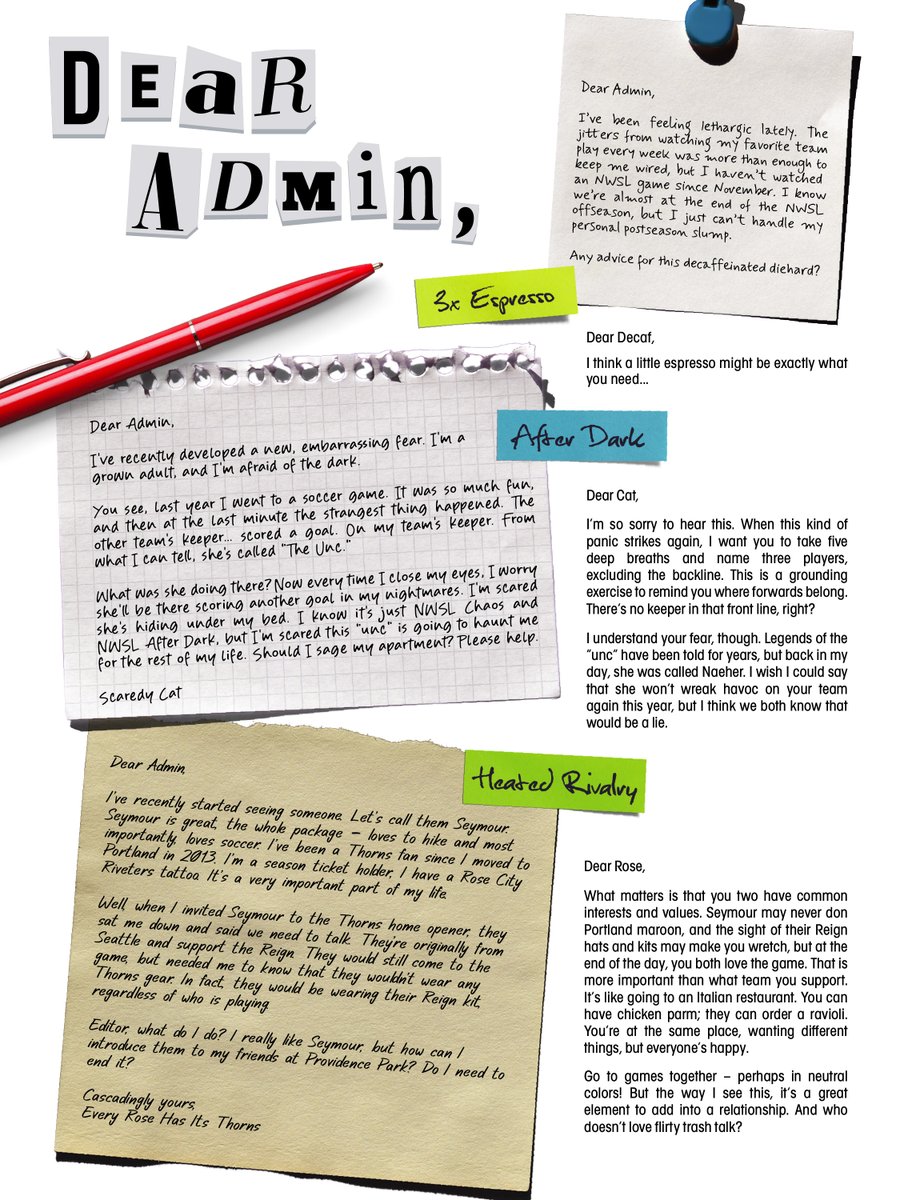 DEAR
ADMIN,
Dear Admin,
I've been feeling lethargic lately. The
jitters from watching my favorite team
play every week was more than enough to
keep me wired, but I haven't watched
an NWSL game since November. I know
we're almost at the end of the NWSL
offseason, but I just can't handle my
personal postseason slump.
Any advice for this decaffeinated diehard?
3x Espresso
Dear Decaf,
I think a little espresso might be exactly what
you need...
Dear Admin,
I've recently developed a new, embarrassing fear. I'm a
grown adult, and I'm afraid of the dark.
You see, last year I went to a soccer game. It was so much fun,
and then at the last minute the strangest thing happened. The
other team's keeper... scored a goal. On my team's keeper. From
what I can tell, she's called "The Unc."
What was she doing there? Now every time I close my eyes, I worry
she'll be there scoring another goal in my nightmares. I'm scared
she's hiding under my bed. I know it's just NWSL Chaos and
NWSL After Dark, but I'm scared this "unc" is going to haunt me
for the rest of my life. Should I sage my apartment? Please help.
Scaredy Cat
After Dark
Dear Cat,
I'm so sorry to hear this. When this kind of
panic strikes again, I want you to take five
deep breaths and name three players,
excluding the backline. This is a grounding
exercise to remind you where forwards belong.
There's no keeper in that front line, right?
I understand your fear, though. Legends of the
"unc" have been told for years, but back in my
day, she was called Naeher. I wish I could say
that she won't wreak havoc on your team
again this year, but I think we both know that
would be a lie.
Dear Admin,
I've recently started seeing someone. Let's call them Seymour.
Seymour is great, the whole package – loves to hike and most
importantly, loves soccer. I've been a Thorns fan since I moved to
Portland in 2013. I'm a season ticket holder, I have a Rose City
Riveters tattoo. It's a very important part of my life.
Well, when I invited Seymour to the Thorns home opener, they
sat me down and said we need to talk. They're originally from
Seattle and support the Reign. They would still come to the
game, but needed me to know that they wouldn't wear any
Thorns gear. In fact, they would be wearing their Reign kit,
regardless of who is playing.
Editor, what do I do? I really like Seymour, but how can I
introduce them to my friends at Providence Park? Do I need to
end it?
Cascadingly yours,
Every Rose Has Its Thorns
Heated Rivalry
Dear Rose,
What matters is that you two have common
interests and values. Seymour may never don
Portland maroon, and the sight of their Reign
hats and kits may make you wretch, but at the
end of the day, you both love the game. That is
more important than what team you support.
It's like going to an Italian restaurant. You can
have chicken parm; they can order a ravioli.
You're at the same place, wanting different
things, but everyone's happy.
Go to games together – perhaps in neutral
colors! But the way I see this, it's a great
element to add into a relationship. And who
doesn't love flirty trash talk?